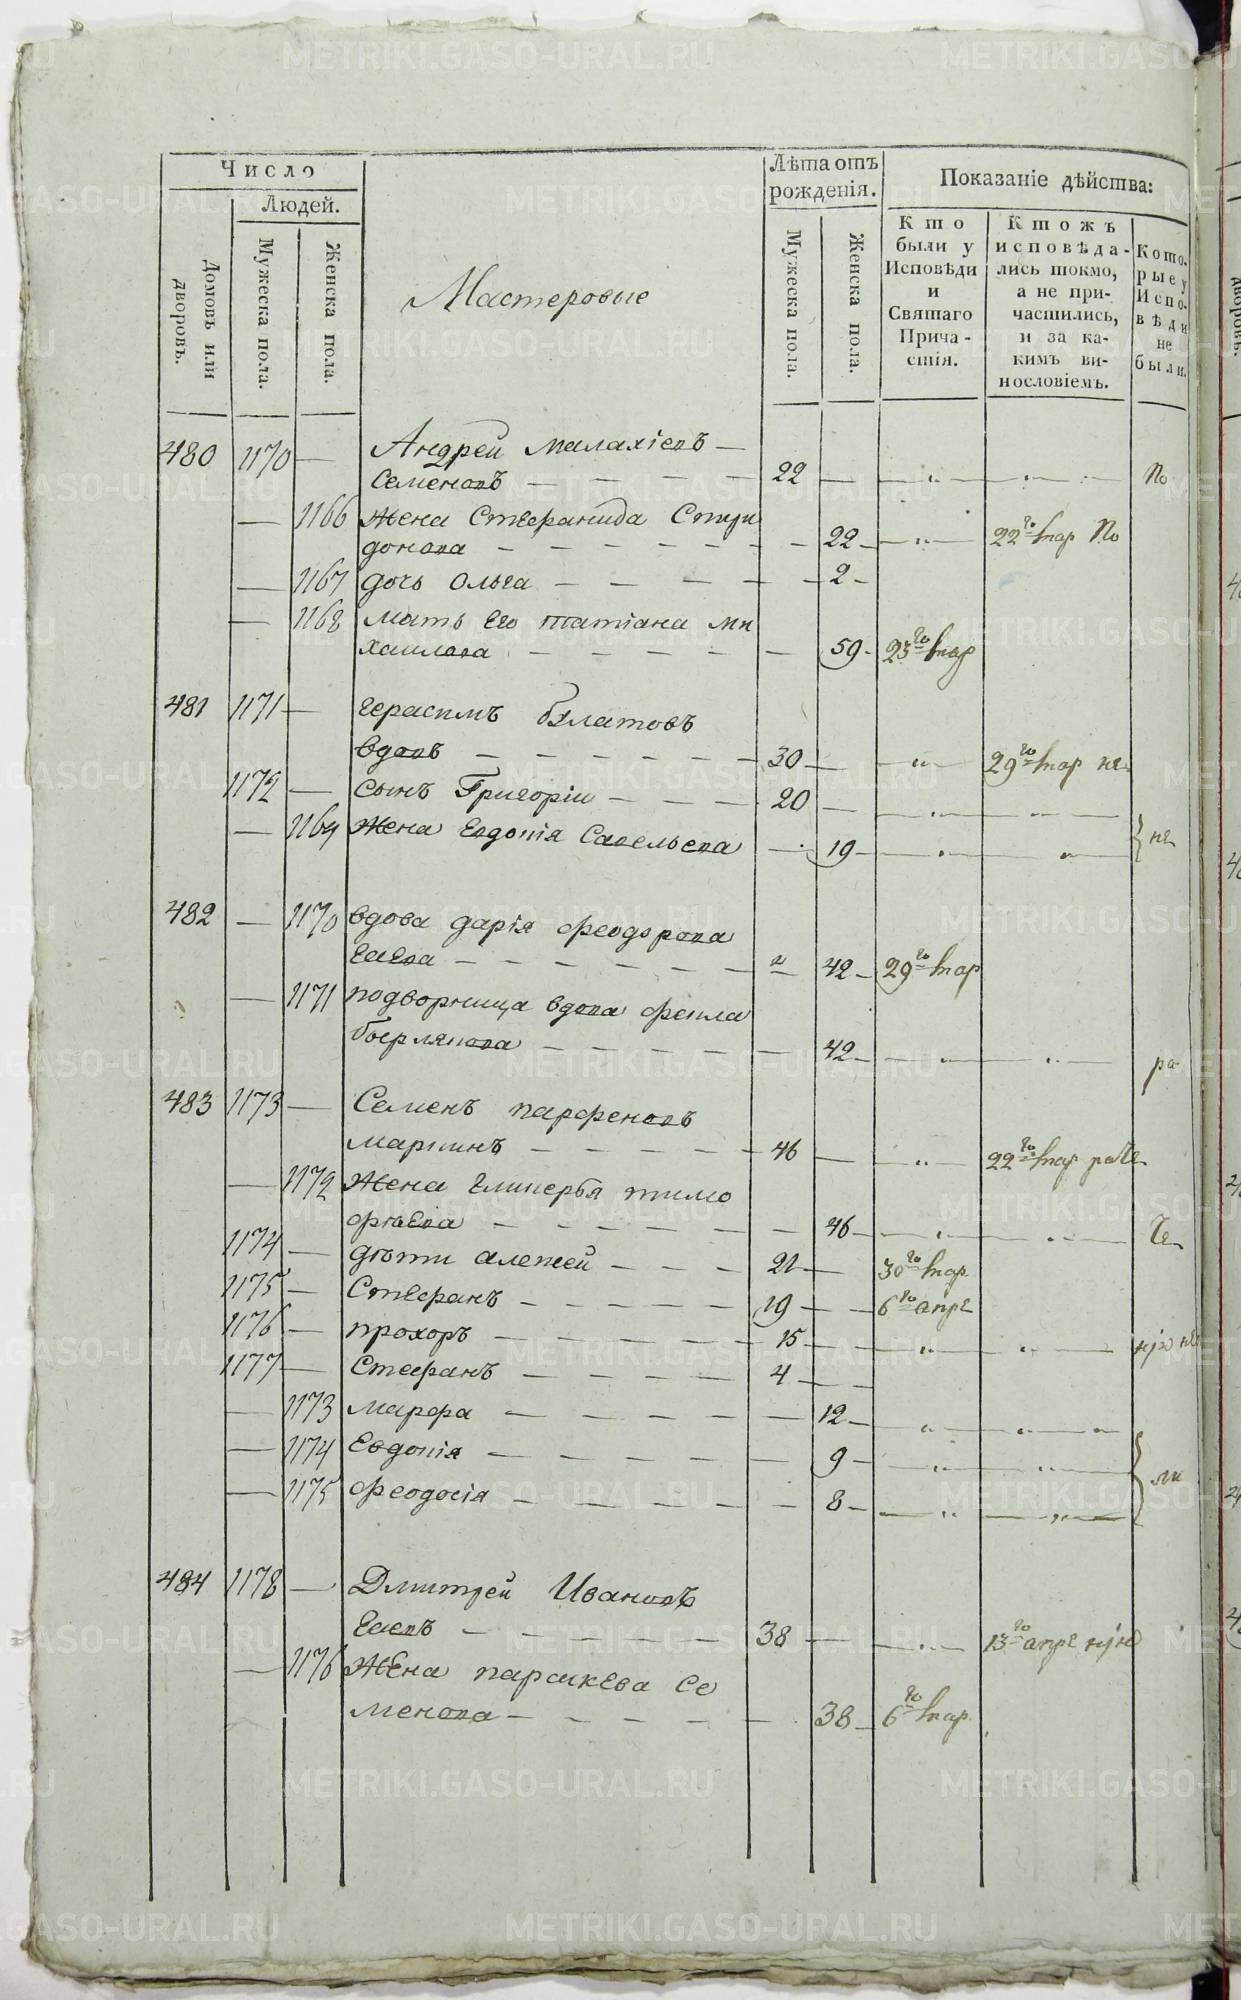 Число
Людей.
Домовъ или дворовъ.
Мужеска пола.
Женска пола.
Мастеровые
Лѣта отъ рожденія.
Мужеска пола.
Женска пола.
Показаніе дѣйства:
Кто были у Исповѣди и Святаго Причастія.
Ктожъ исповѣдались токмо, а не причастились, и за какимъ винословіемъ.
Которые у Исповѣди не были.
480 1170 — Андрей малахіевъ —
Семеновъ — — — — 22 — — „ — — „ — по
— 1166 жена Стефанида Спири
донова — — — — — — 22 — „ — 22го мар по
— 1167 дочь Ольга — — — — 2 —
— 1168 мать Его татіана ми
хаилова — — — — — 59 - 23го мар
481 1171 — герасимъ
вдовъ — — — — — 30 — „ — 29го мар не
1172 — сынъ Григоріи — — — 20 — — „ — —
— 1169 жена Евдокія Савельева — 19 — „ — „ — не
482 — 1170 вдова дарія феодорова
— — — — — — „ 42 — 29го мар
— 1171 подворница вдова фекла
— — — — — 42 — — „ — „ — ра
483 1173 — Семенъ парфеновъ
— — — — — 46 — — „ — 22го мар
— 1172 жена Гликерья тимо
фѣева — — — — — — 46 — „ — „ —
1174 — дѣти алексей — — — 21 — 30го мар
1175 — Стефанъ — — — — — 19 — — 6го апре
1176 — прохоръ — — — — — 15 — — „ — „ —
1177 — Стефанъ — — — — — 4 — —
— 1173 марфа — — — — — 12 — „ — „ —
— 1174 Евдокія — — — — — 9 — „ — „ —
— 1175 феодосія — — — — — 8 — „ — „ — ли
484 1178 — Дмитрей Ивановъ
— — — — — 38 — — „ — 13го апре
— 1176 Жена параскева Се
менова — — — — — 38 — 6го мар
METRIKI.GASO-URAL.RU